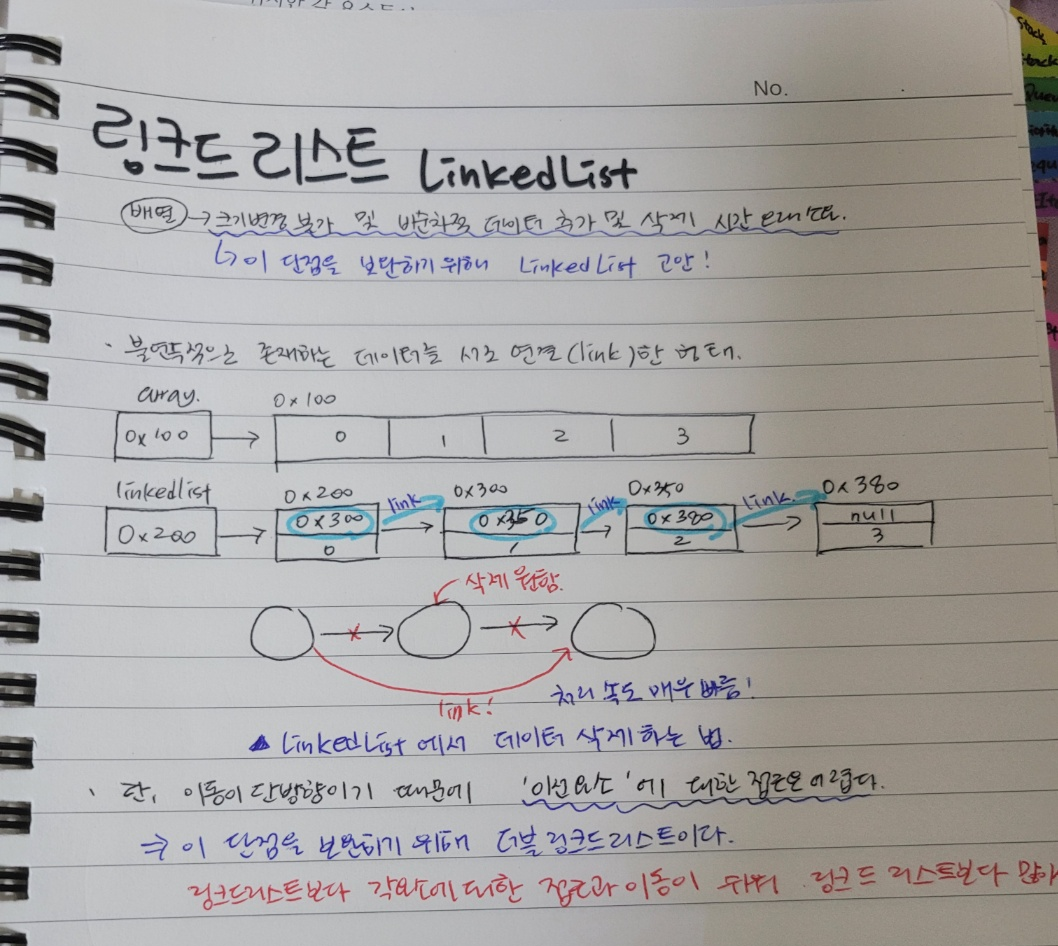 No.
링크드 리스트 LinkedList
배열 → 크기변경 불가 및 비순차적 데이터 추가 및 삭제 시간 오래 걸림.
↳ 이 단점을 보완하기 위해 LinkedList 고안!
· 불연속적으로 존재하는 데이터를 서로 연결(link)한 형태.
array. 0x100
0x100 → 0 1 2 3
linkedlist 0x200 link 0x300 link 0x350 link 0x380
0x200 → 0x300 → 0x350 → 0x380 → null
0 1 2 3
삭제 원함.
link!
처리 속도 매우 빠름!
▲ LinkedList 에서 데이터 삭제하는 법.
· 단, 이동이 단방향이기 때문에 '이전요소'에 대한 접근은 어렵다.
⇒ 이 단점을 보완하기 위해 더블 링크드리스트이다.
링크드리스트보다 각 요소에 대한 접근과 이동이 쉬워 링크드 리스트보다 많이
Stack